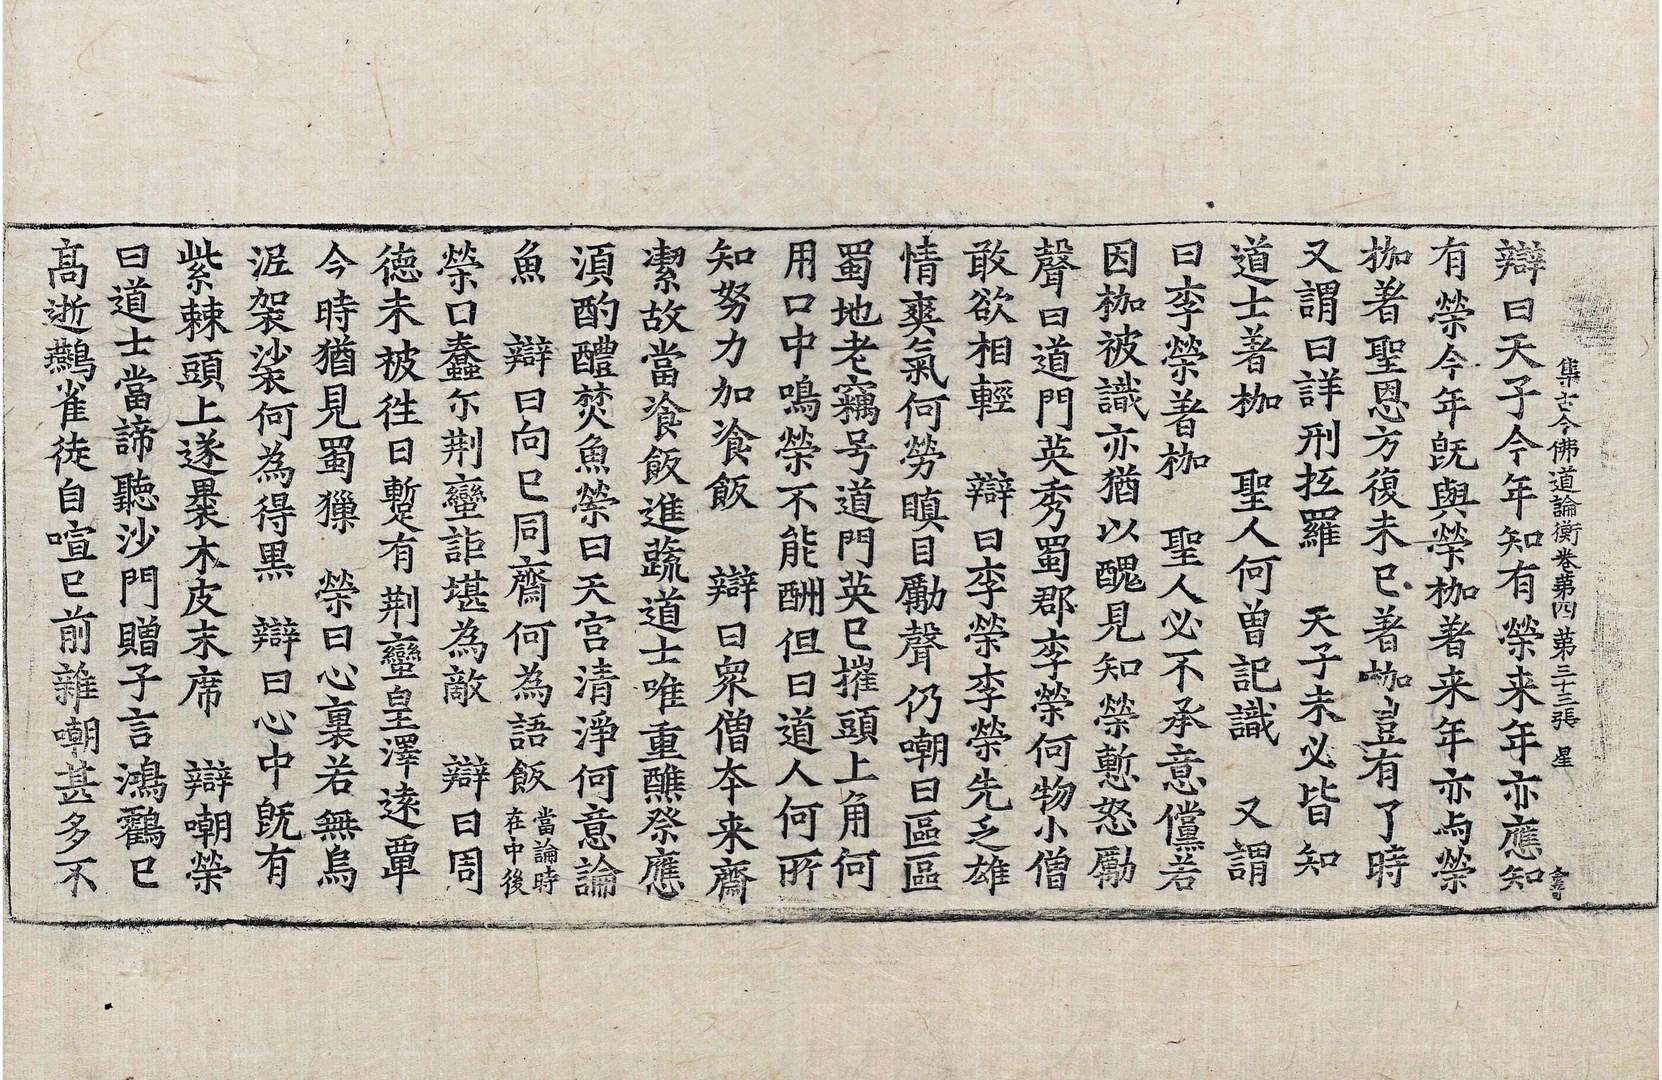 集古今佛道論衡卷第四 第三十三張 星
辯曰天子今年知有榮来年亦應知
有榮今年既與榮枷著来年亦与榮
枷著聖恩方復未已著枷豈有了時
又謂曰詳刑抂羅 天子未必皆知
道士著枷 聖人何曽記識 又謂
曰李榮著枷 聖人必不承意儻若
因枷被識亦猶以醜見知榮慙怒勵
聲曰道門英秀蜀郡李榮何物小僧
敢欲相輕 辯曰李榮李榮先乏雄
情爽氣何勞瞋目勵聲仍嘲曰區區
蜀地老竊号道門英已摧頭上角何
用口中鳴榮不能酬但曰道人何所
知努力加飡飯 辯曰衆僧本来齋
潔故當飡飯進蔬道士唯重醮祭應
湏酌醴焚魚榮曰天宮清淨何意論
魚 辯曰向已同齋何為語飯當論時在中後
榮口蠢尓荆蠻詎堪為敵 辯曰周
德未被往日蹔有荆蠻皇澤遠覃
今時猶見蜀獠 榮曰心裏若無烏
泥袈裟何為得黒 辯曰心中既有
紫棘頭上遂裹木皮末席 辯嘲榮
曰道士當諦聽沙門贈子言鴻鸖已
髙逝鷰雀徒自喧已前雜嘲甚多不